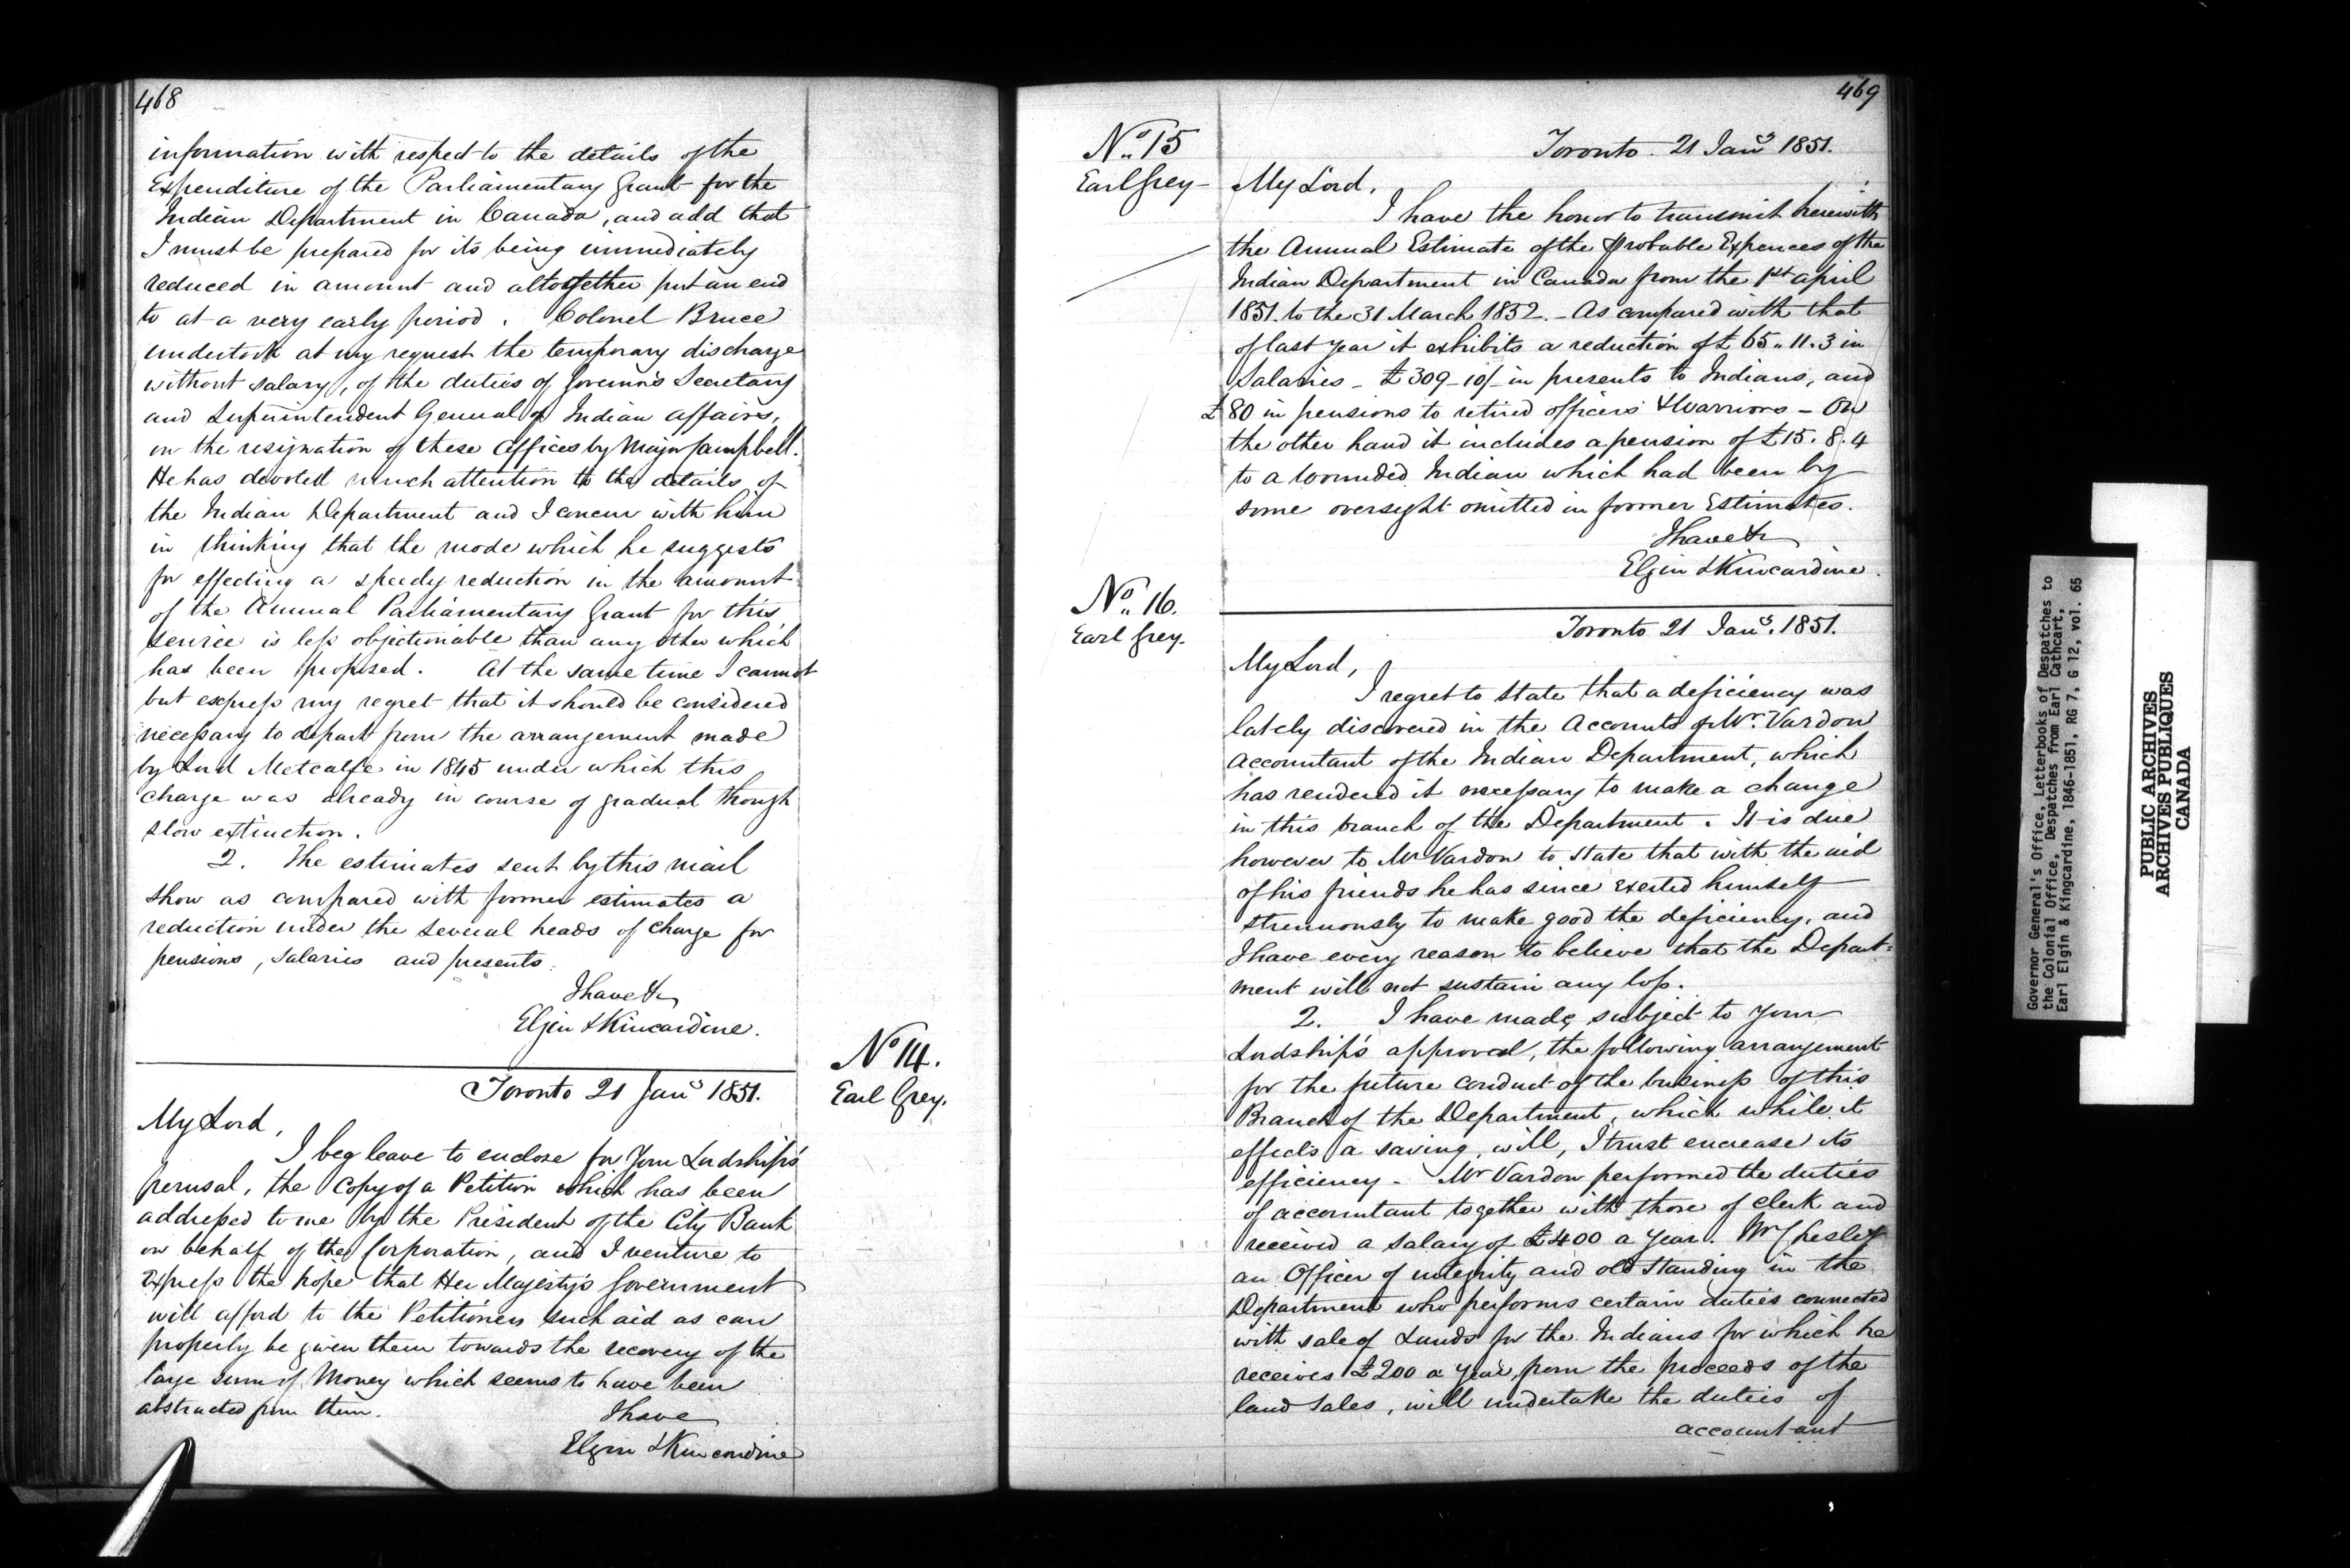 468
information with respect to the details of the
Expenditure of the Parliamentary Grant for the
Indian Department in Canada, and add that
I must be prepared for its being immediately
reduced in amount and altogether put an end
to at a very early period. Colonel Bruce
undertook at my request the temporary discharge
without salary, of the duties of Governor's Secretary
and Superintendent General of Indian Affairs,
on the resignation of these Offices by Major Campbell.
He has devoted much attention to the details of
the Indian Department and I concur with him
in thinking that the mode which he suggests
for effecting a speedy reduction in the amount
of the Annual Parliamentary Grant for this
service is less objectionable than any other which
has been proposed. At the same time I cannot
but express my regret that it should be considered
necessary to depart from the arrangement made
by Lord Metcalfe in 1845 under which this
charge was already in course of gradual though
slow extinction.
2. The estimates sent by this mail
show as compared with former estimates a
reduction under the several heads of charge for
pensions, salaries and presents.
I have &c
Elgin & Kincardine.
No 14.
Earl Grey.
Toronto 21 Jany 1851.
My Lord,
I beg leave to enclose for Your Lordship's
perusal, the Copy of a Petition which has been
addressed to me by the President of the City Bank
on behalf of the Corporation, and I venture to
express the hope that Her Majesty's Government
will afford to the Petitioners such aid as can
properly be given them towards the recovery of the
large sum of Money which seems to have been
abstracted from them.
I have
Elgin & Kincardine
469
No 15
Earl Grey
Toronto. 21 Jany 1851.
My Lord,
I have the honor to transmit herewith
the Annual Estimate of the Probable Expences of the
Indian Department in Canada from the 1st April
1851. to the 31 March 1852. - As compared with that
of last year it exhibits a reduction of £65.. 11. 3 in
Salaries - £309-10/- in presents to Indians, and
£80 in pensions to retired officers & Warriors - On
the other hand it includes a pension of £15. 8. 4
to a wounded Indian which had been by
some oversight omitted in former Estimates.
I have &c
Elgin & Kincardine.
No 16.
Earl Grey.
Toronto 21 Jany. 1851.
My Lord,
I regret to state that a deficiency was
lately discovered in the Accounts of Mr. Vardon
Accountant of the Indian Department, which
has rendered it necessary to make a change
in this branch of the Department. It is due
however to Mr Vardon to state that with the aid
of his friends he has since exerted himself
strenuously to make good the deficiency, and
I have every reason to believe that the Depart=
ment will not sustain any loss.
2. I have made, subject to Your
Lordship's approval, the following arrangement
for the future conduct of the business of this
Branch of the Department, which while it
effects a saving, will, I trust encrease its
efficiency - Mr Vardon performed the duties
of accountant together with those of clerk and
received a salary of £400 a year. Mr Chesley
an Officer of integrity and old standing in the
Department who performs certain duties connected
with sale of Lands for the Indians for which he
receives £200 a year, from the proceeds of the
land sales, will undertake the duties of
accountant
Governor General's Office, Letterbooks of Despatches to
the Colonial Office, Despatches from Earl Cathcart,
Earl Elgin & Kingcardine, 1846-1851, RG 7, G 12, vol. 65
PUBLIC ARCHIVES
ARCHIVES PUBLIQUES
CANADA